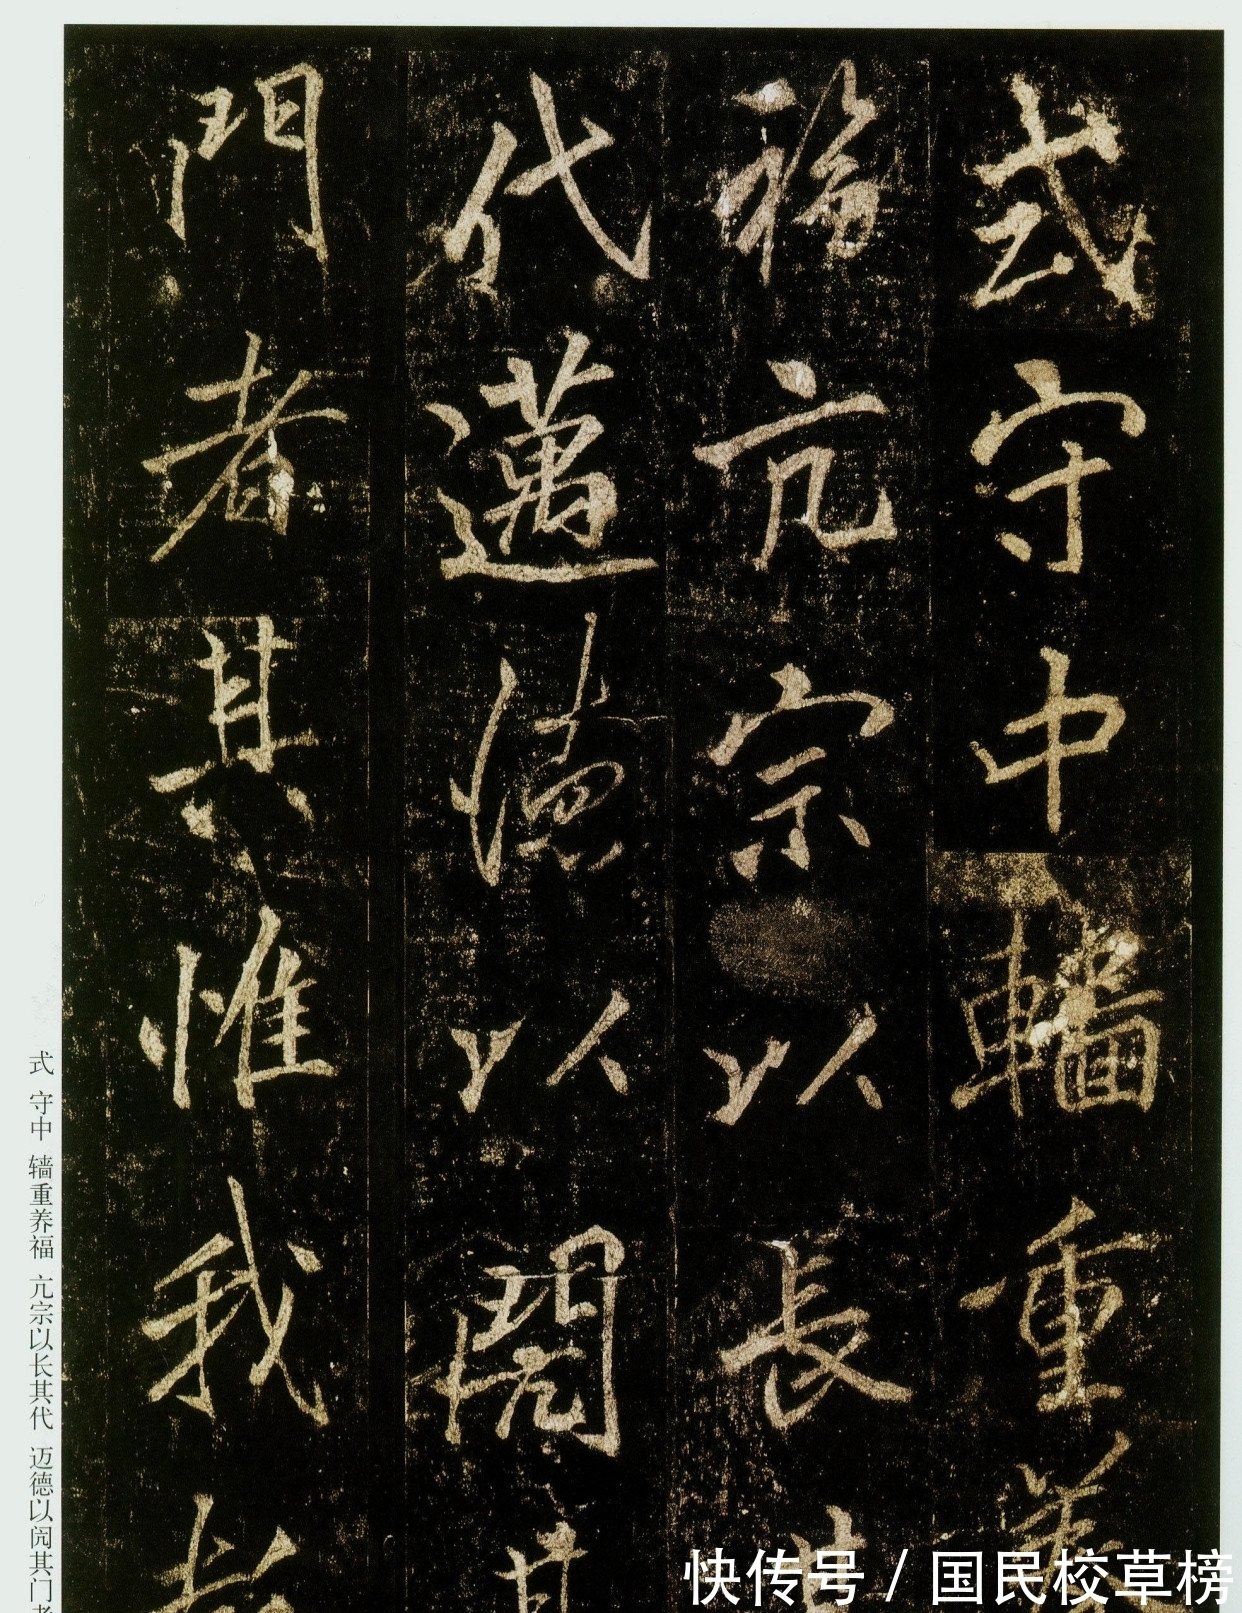 式守中轖重养
福亢宗以長其
代邁德以閌其
門者其惟我
式 守中 轖重养福 亢宗以长其代 迈德以闶其门者
快传号 / 国民校草榜